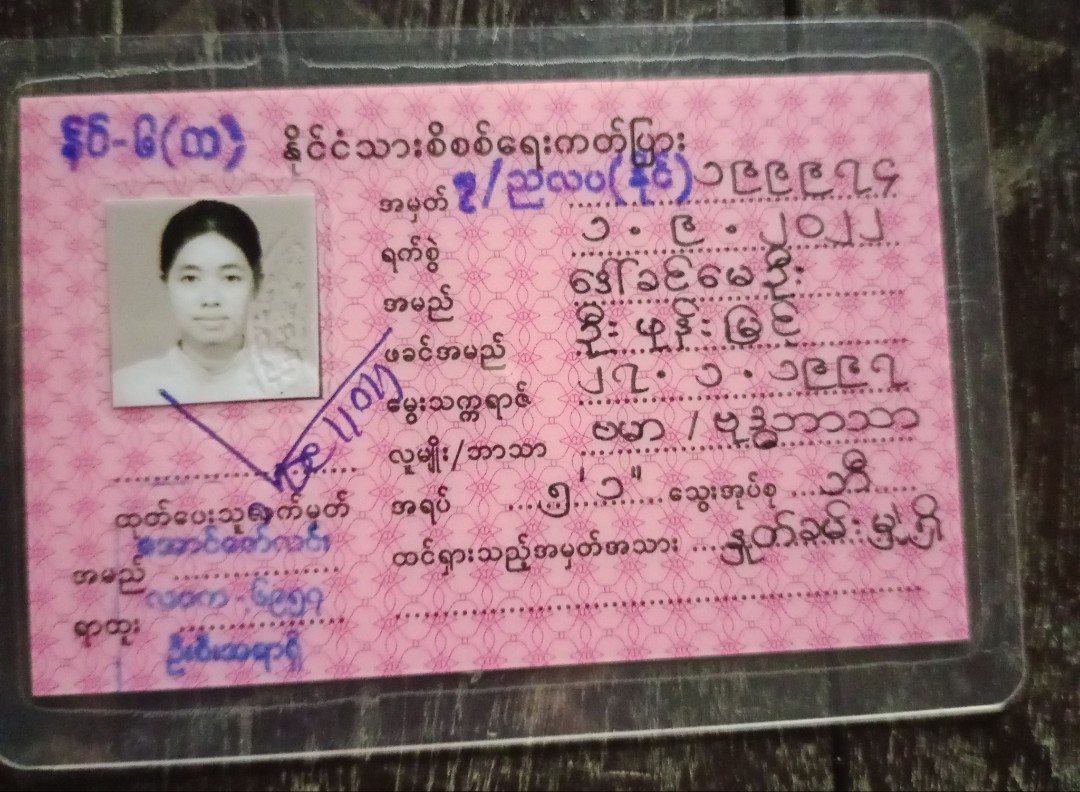 နိပ်-၆(က) နိုင်ငံသားစိစစ်ရေးကတ်ပြား
အမှတ် ၇/ညလပ(နိုင်)၁၉၉၉၇၄
ရက်စွဲ ၁.၉.၂၀၂၂
အမည် ဒေါ်ခင်မေဦး
ဖခင်အမည် ဦးဟုန်းမြင့်
မွေးသက္ကရာဇ် ၂၇.၁.၁၉၉၇
လူမျိုး/ဘာသာ ဗမာ / ဗုဒ္ဓဘာသာ
အရပ် ၅'၁" သွေးအုပ်စု ဘီ
ထင်ရှားသည့်အမှတ်အသား နှုတ်ခမ်းမှဲ့ရှိ
ထုတ်ပေးသူလက်မှတ်
အမည် အောင်ဇော်လင်း
လဝက - ၆၉၅၇
ရာထူး ဦးစီးအရာရှိ